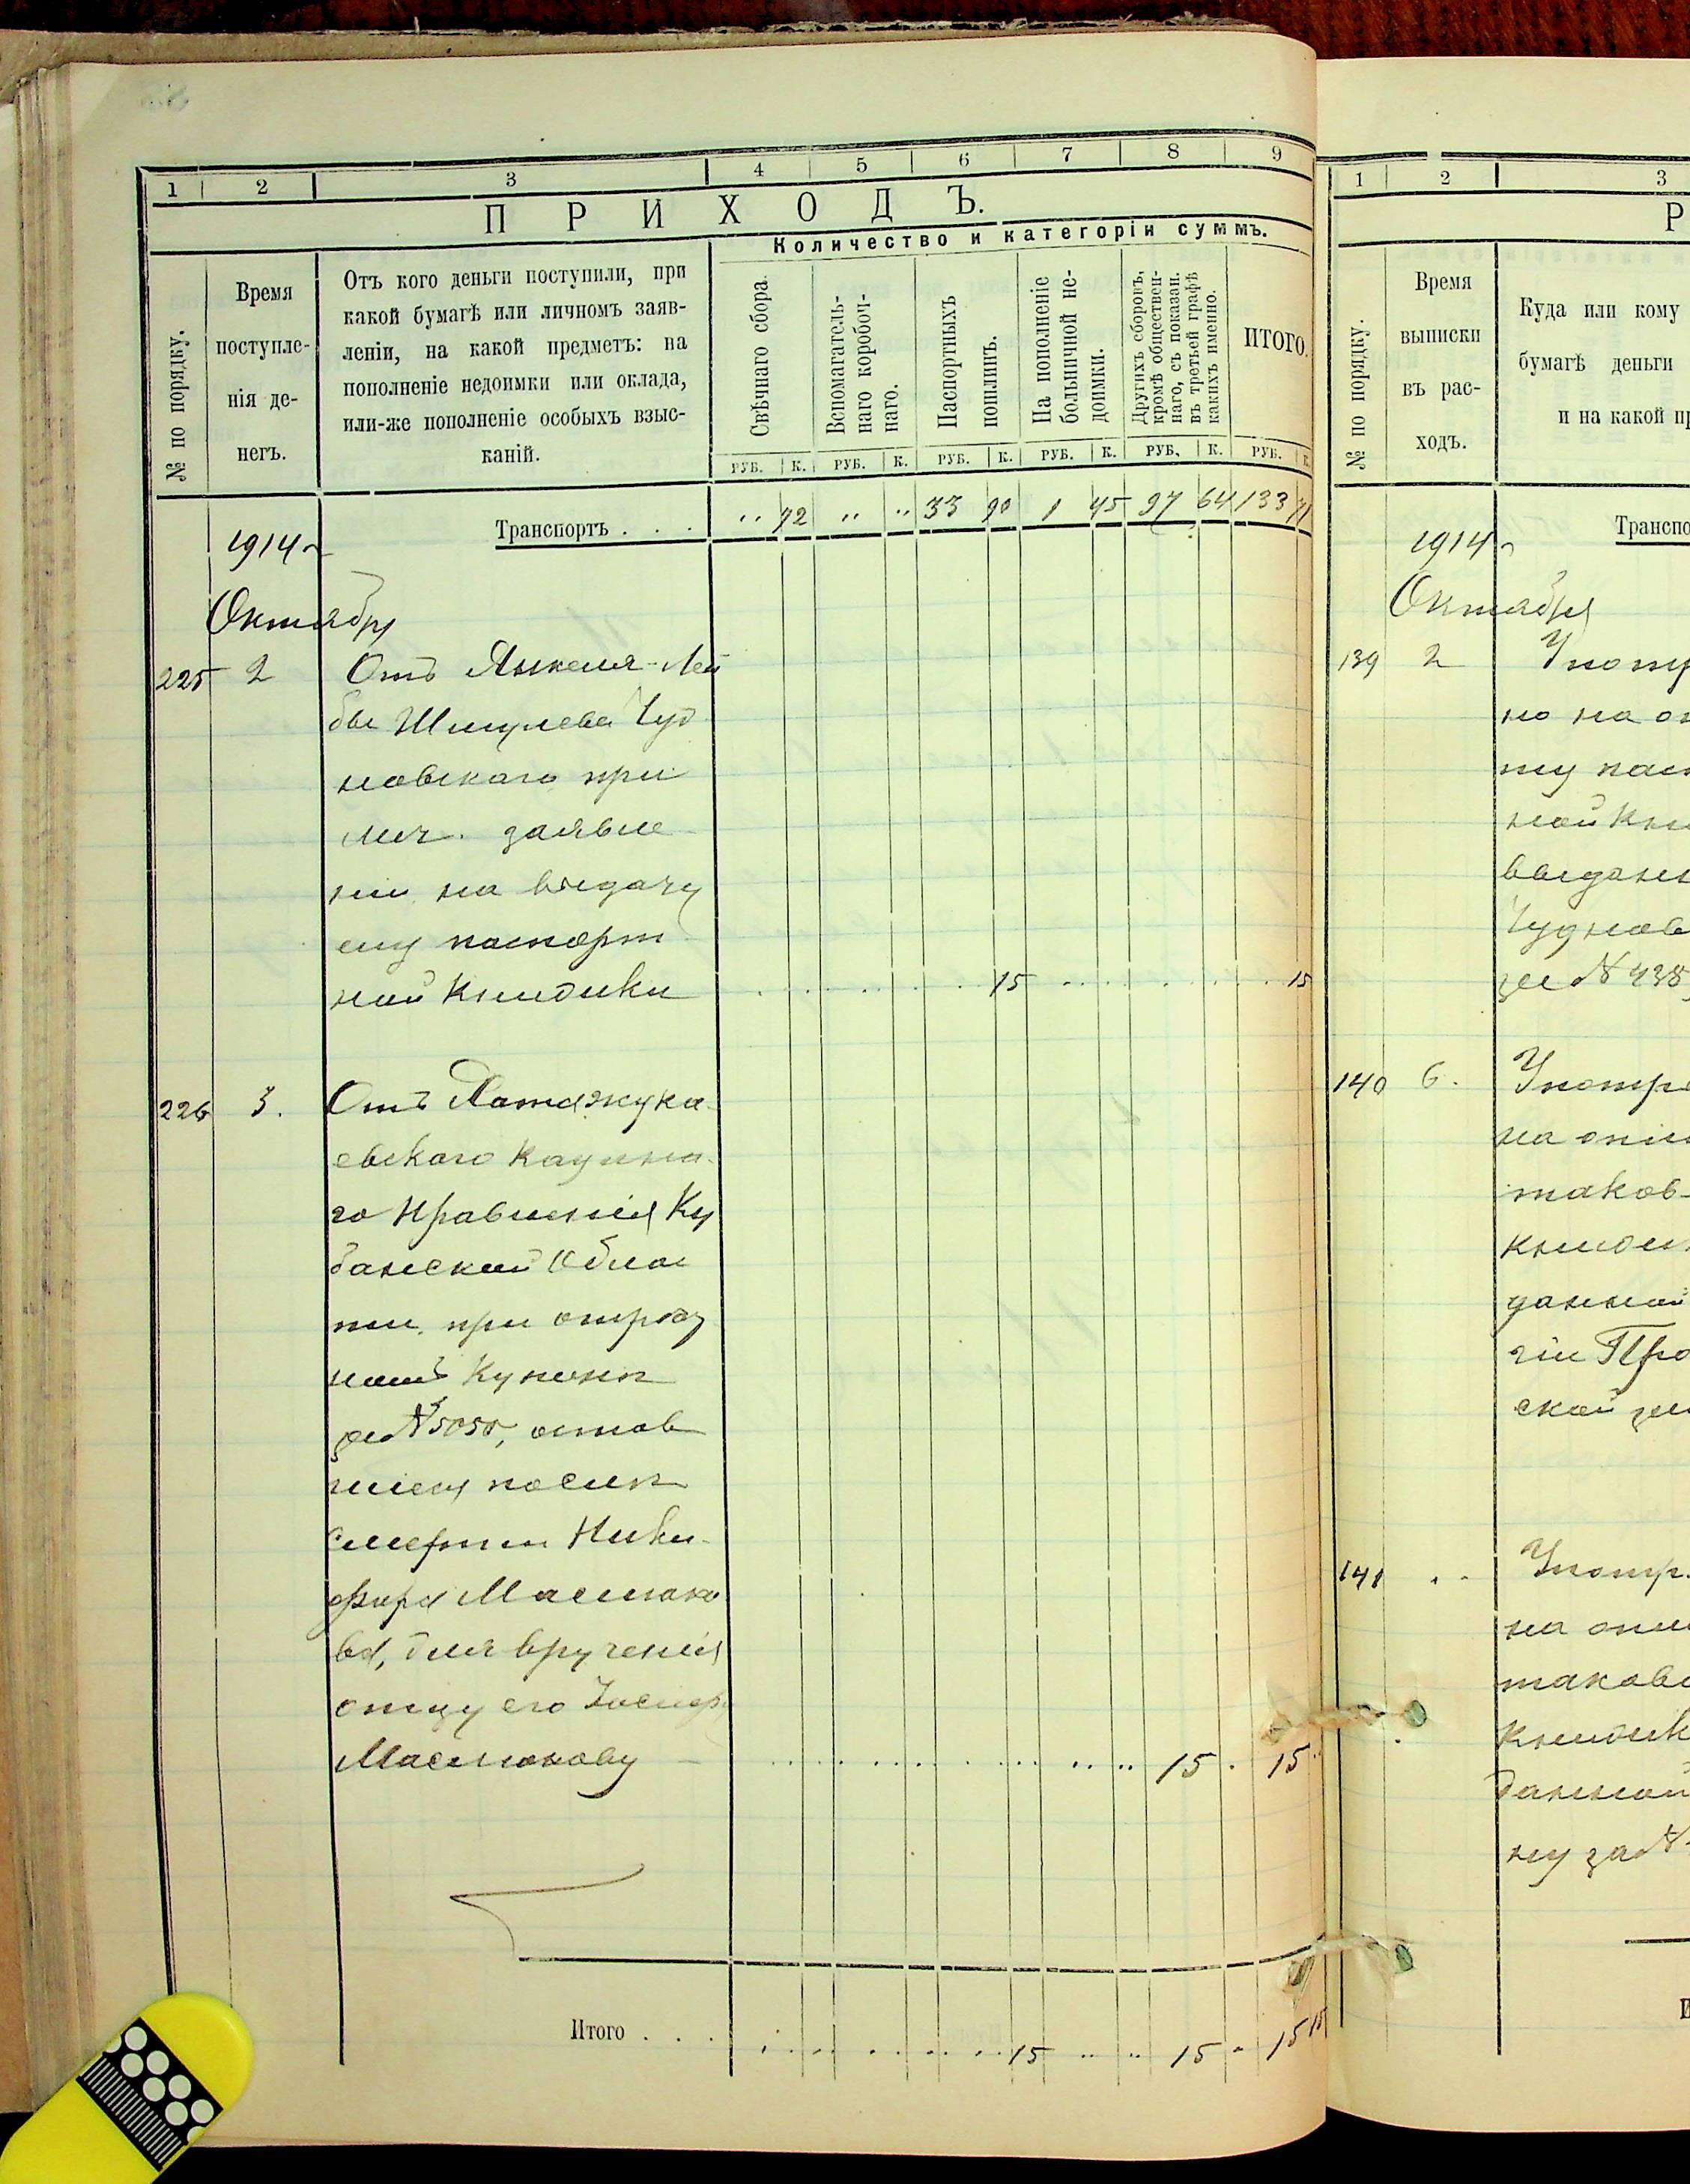 1 2 3 4 5 6 7 8 9
ПРИХОДЪ.
Количество и категоріи суммъ.
№ по порядку.
Время
поступле-
нія де-
негъ.
Отъ кого деньги поступили, при
какой бумагѣ или личномъ заяв-
леніи, на какой предметъ: на
пополненіе недоимки или оклада,
или-же пополненіе особыхъ взыс-
каній.
Свѣчнаго сбора.
Вспомагатель-
наго коробоч-
наго.
Паспортныхъ
пошлинъ.
На пополненіе
больничной не-
доимки.
Другихъ сборовъ,
кромѣ обществен-
наго, съ показан.
въ третьей графѣ
какихъ именно.
ИТОГО.
РУБ. К. РУБ. К. РУБ. К. РУБ. К. РУБ. К. РУБ. К.
Транспортъ . . . „ 72 „ „ 33 90 1 45 97 64 133 71
1914 г
Октября
225 2 Отъ Янкеля-Лей
бы Шмулева Чуд
новскаго при
лич. заявле
ніи на выдачу
ему паспорт
ной книжки 15 15
226 3. Отъ Атажука
евскаго Аульна
го Правленія Ку
банской Облас
ти, при отрѣз
номъ купонѣ
за № 5050, остав
шіеся послѣ
смерти Ники-
фора Маслюко
ва, для врученія
отцу его
Маслюкову 15 . 15
Итого . . . 15 „ „ 15 „ 15 15
1 2 3
Р
№ по порядку.
Время
выписки
въ рас-
ходъ.
Куда или кому
бумагѣ деньги
и на какой пр
Транспо
1914 г
Октября
139 2 Употр
но на оп
ту пасп
ной кни
выданн
Чуднов
за № 438
140 6. Употре
на опл
таков
книж
данной
гіи Про
ской за
141 „ Употр.
на опл
таков
книжк
данной
ну за №
И